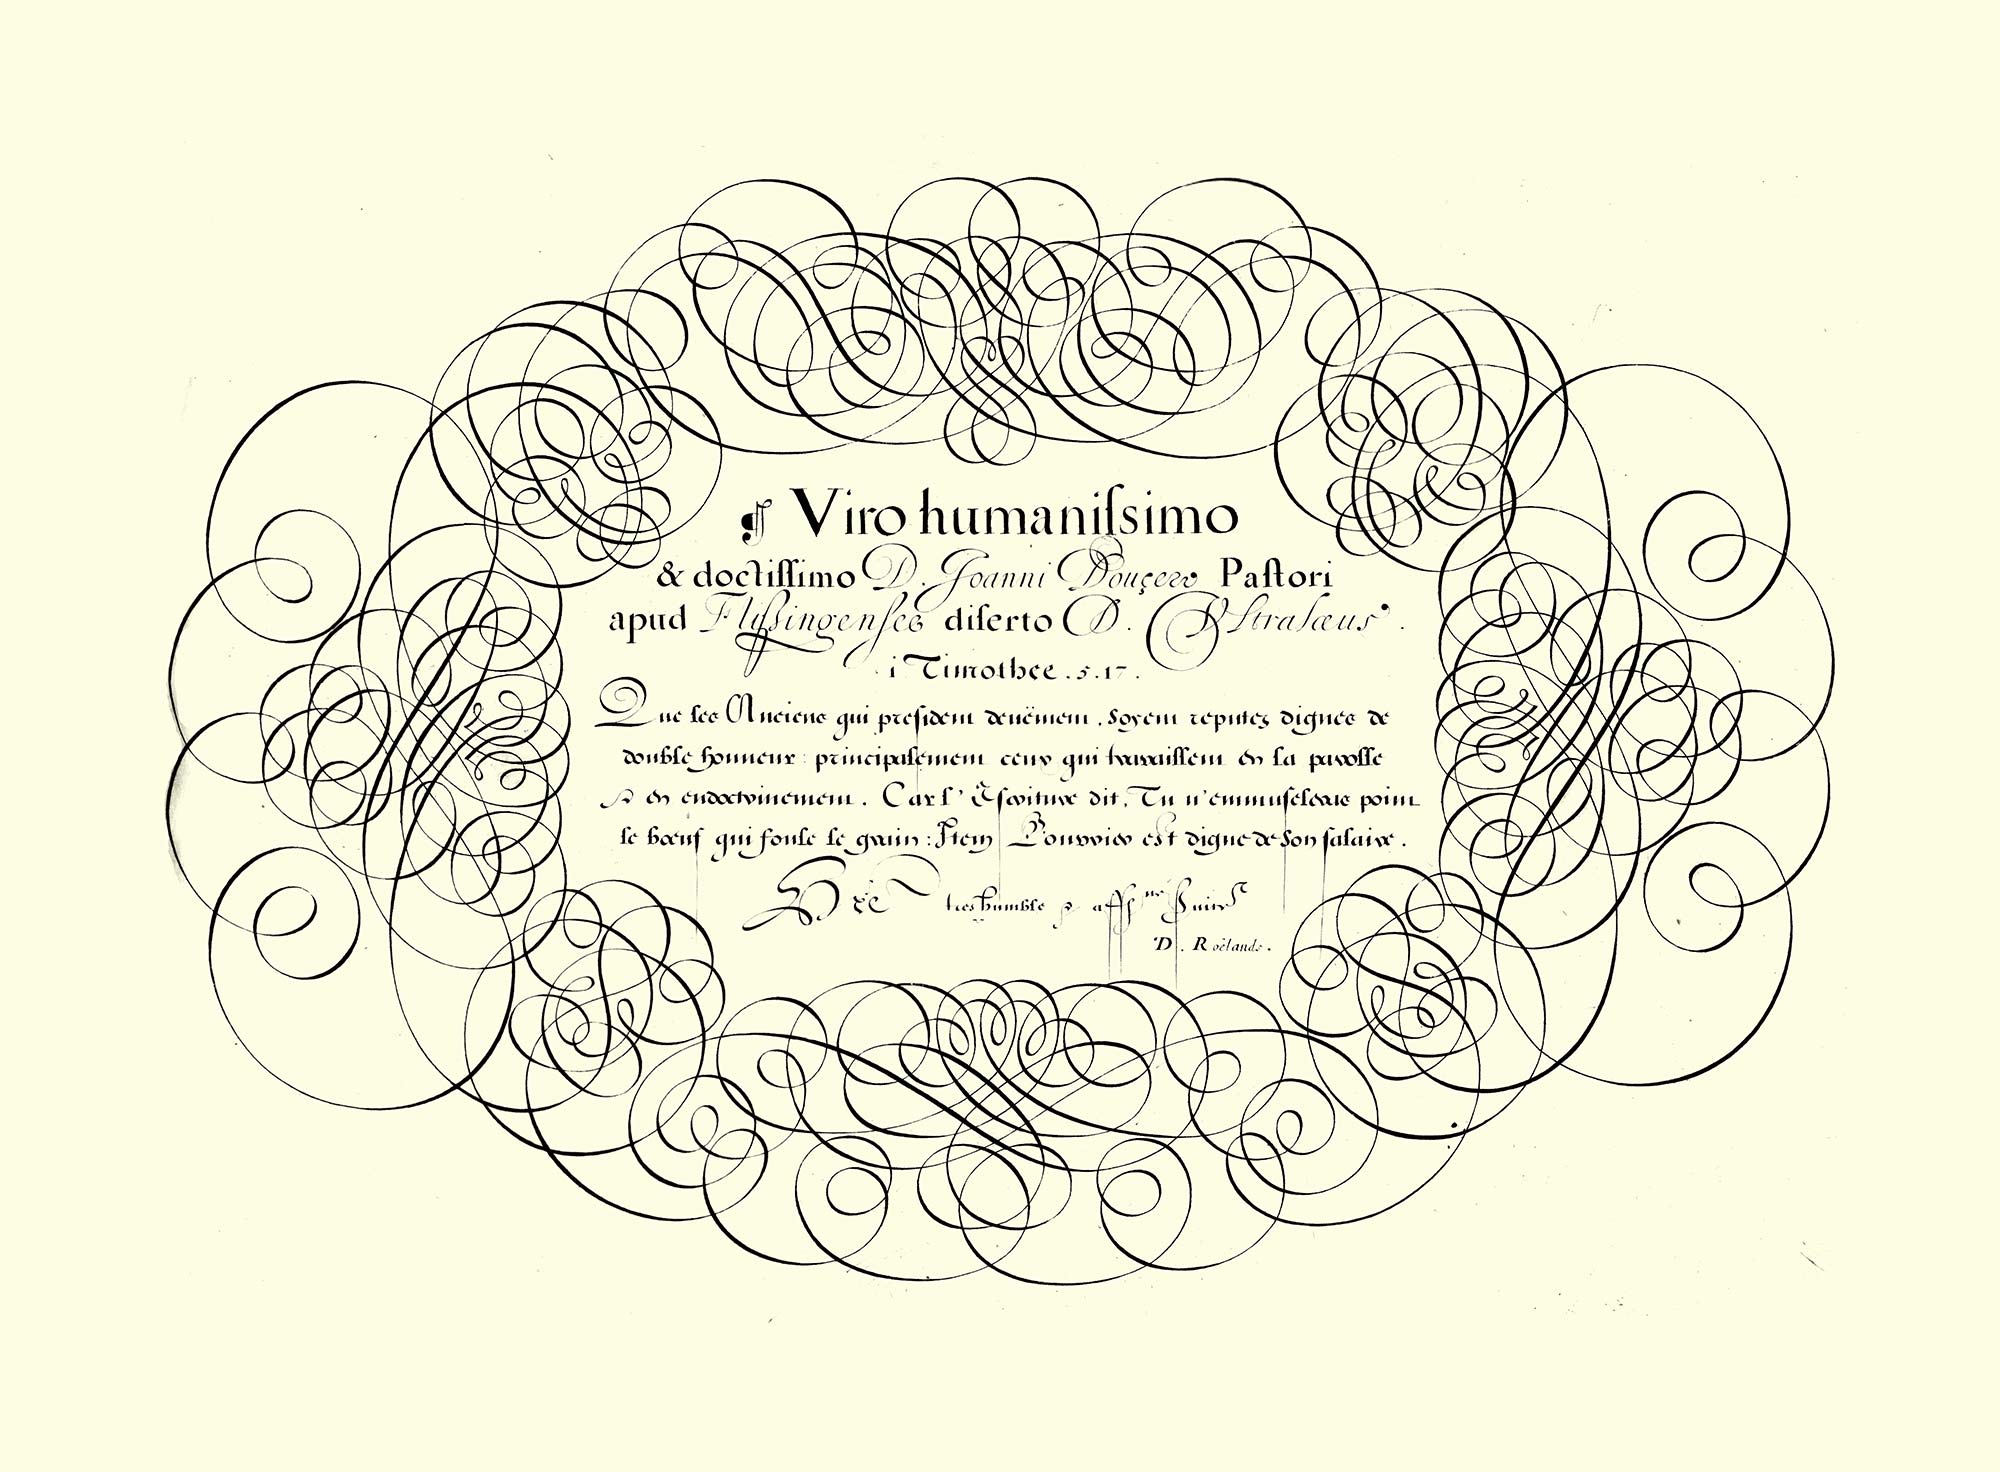 ¶ Viro humaniſsimo
& doctiſſimo D. Joanni Pouçero Paſtori
apud Fliſsingenſes diſerto D.
i Timothee . 5 . 17 .
Que les Anciens qui president deuëment , soyent reputez dignes de
double honneur : principalement ceux qui travaillent en la parolle
& en endoctrinement . Car l' Escriture dit , Tu n'emmuseleras point
le bœuf qui foule le grain : Item L'ouvrier est digne de son salaire .
Vre tres humble & aff.né Suitr
D . Roëlands .